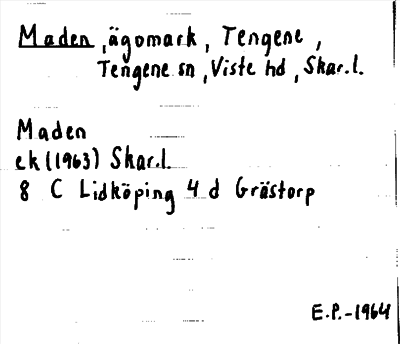 Maden, ägomark, Tengene,
Tengene sn, Viste hd, Skar.l.
Maden
ek (1963) Skar.l.
8 C Lidköping 4 d Grästorp
E.P.-1964